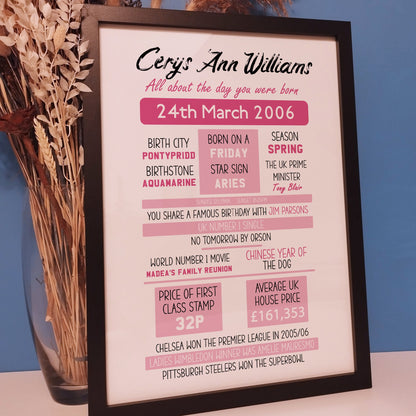 Cerys Ann Williams
All about the day you were born
24th March 2006
BIRTH CITY
PONTYPRIDD
BIRTHSTONE
AQUAMARINE
BORN ON A
FRIDAY
STAR SIGN
ARIES
SEASON
SPRING
THE UK PRIME
MINISTER
Tony Blair
YOU SHARE A FAMOUS BIRTHDAY WITH JIM PARSONS
UK NUMBER 1 SINGLE
NO TOMORROW BY ORSON
WORLD NUMBER 1 MOVIE
MADEA'S FAMILY REUNION
CHINESE YEAR OF
THE DOG
PRICE OF FIRST
CLASS STAMP
32P
AVERAGE UK
HOUSE PRICE
£161,353
CHELSEA WON THE PREMIER LEAGUE IN 2005/06
LADIES WIMBLEDON WINNER WAS AMELIE MAURESMO
PITTSBURGH STEELERS WON THE SUPERBOWL